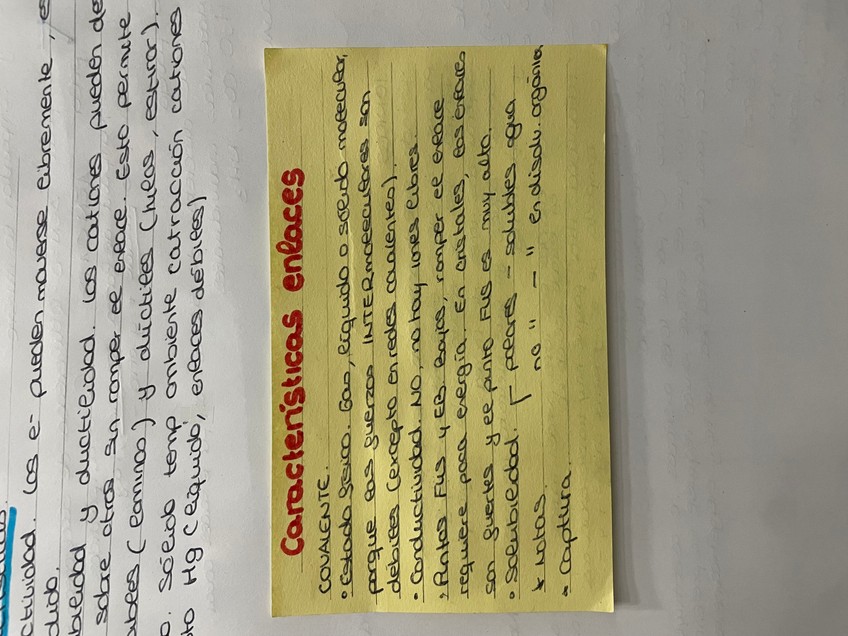 ctividad. Los e- pueden moverse libremente, e
dido.
bilidad y ductilidad. Los cationes pueden de
sobre otros sin romper el enlace. Esto permite
ables (láminas) y dúctiles (hilos, estirar).
o. Sólido temp ambiente (atracción cationes
to Hg (líquido, enlaces débiles)
Características enlaces
COVALENTE.
• Estado físico. Gas, líquido o sólido molecular,
porque las fuerzas INTERmoleculares son
débiles (excepto en redes covalentes).
• Conductividad. NO, no hay iones libres.
• Puntos FUS y EB. Bajos, romper el enlace
requiere poca energía. En cristales, los enlaces
son fuertes y el punto FUS es muy alto.
• Solubilidad. polares - solubles agua
no " - " en disolv. orgánico
* Notas.
* Captura.